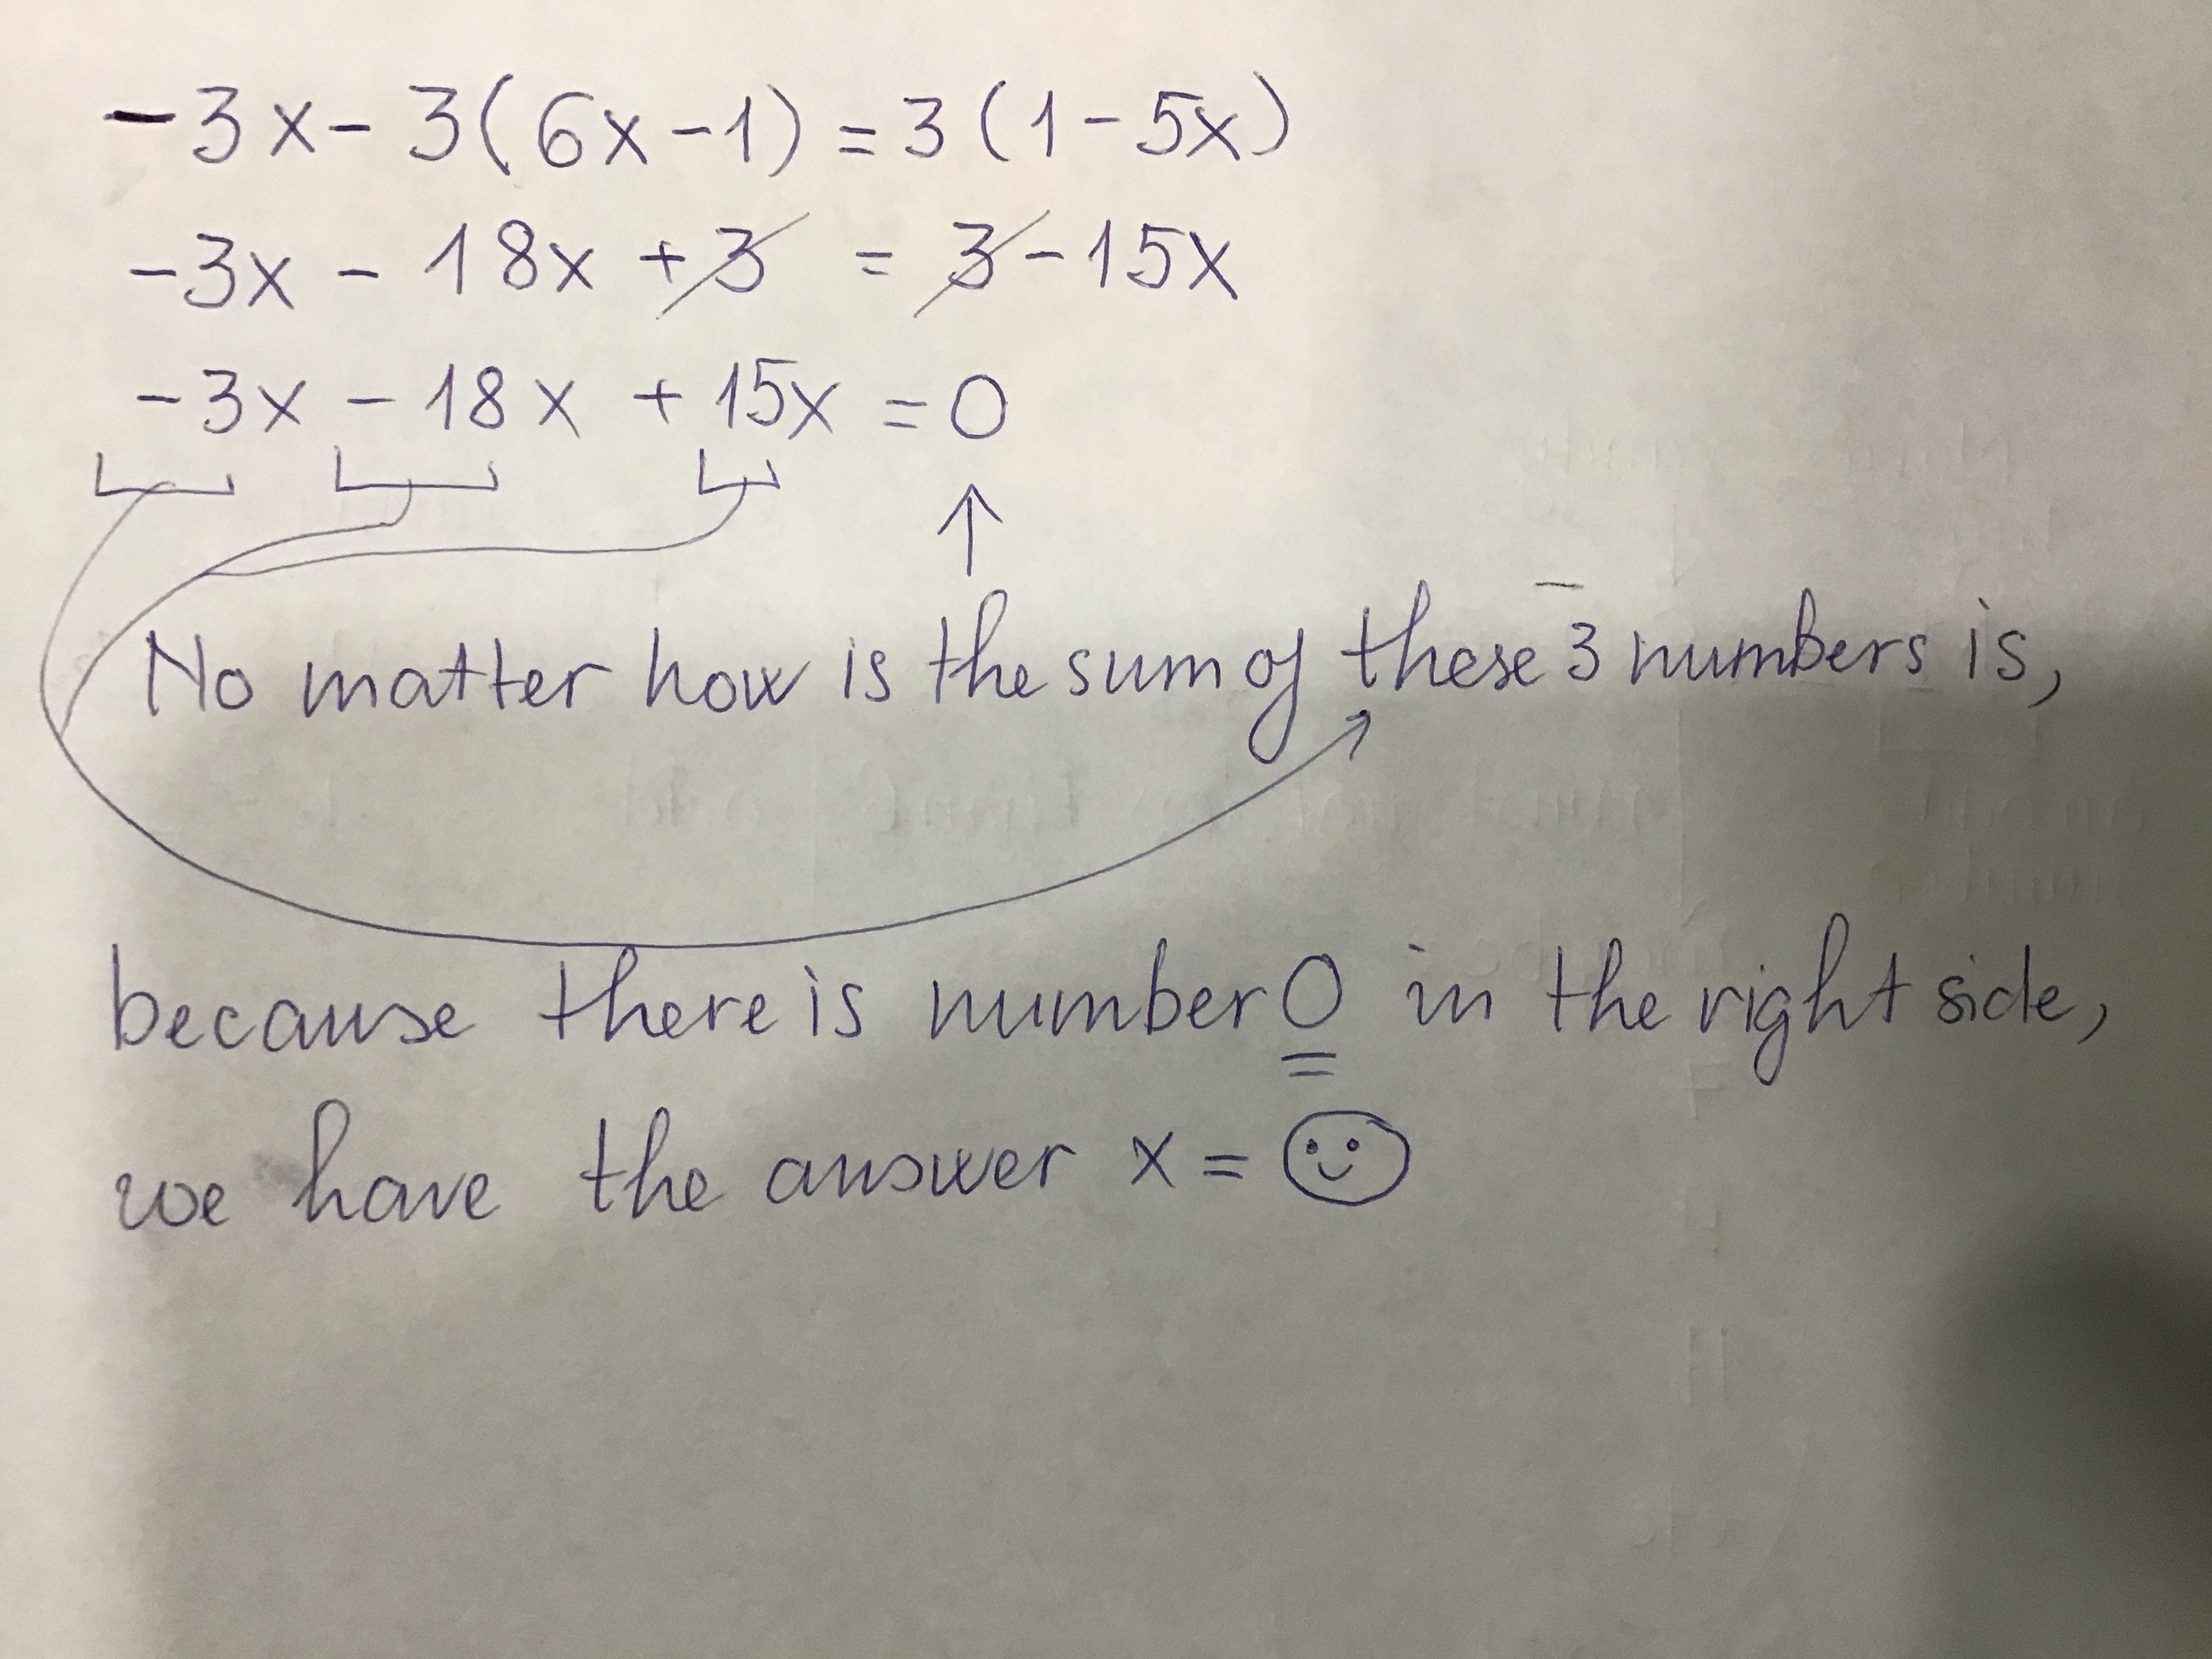 -3x - 3(6x - 1) = 3(1 - 5x)
-3x - 18x + 3 = 3 - 15x
-3x - 18x + 15x = 0
No matter how is the sum of these 3 numbers is,
because there is number 0 in the right side,
we have the answer x =